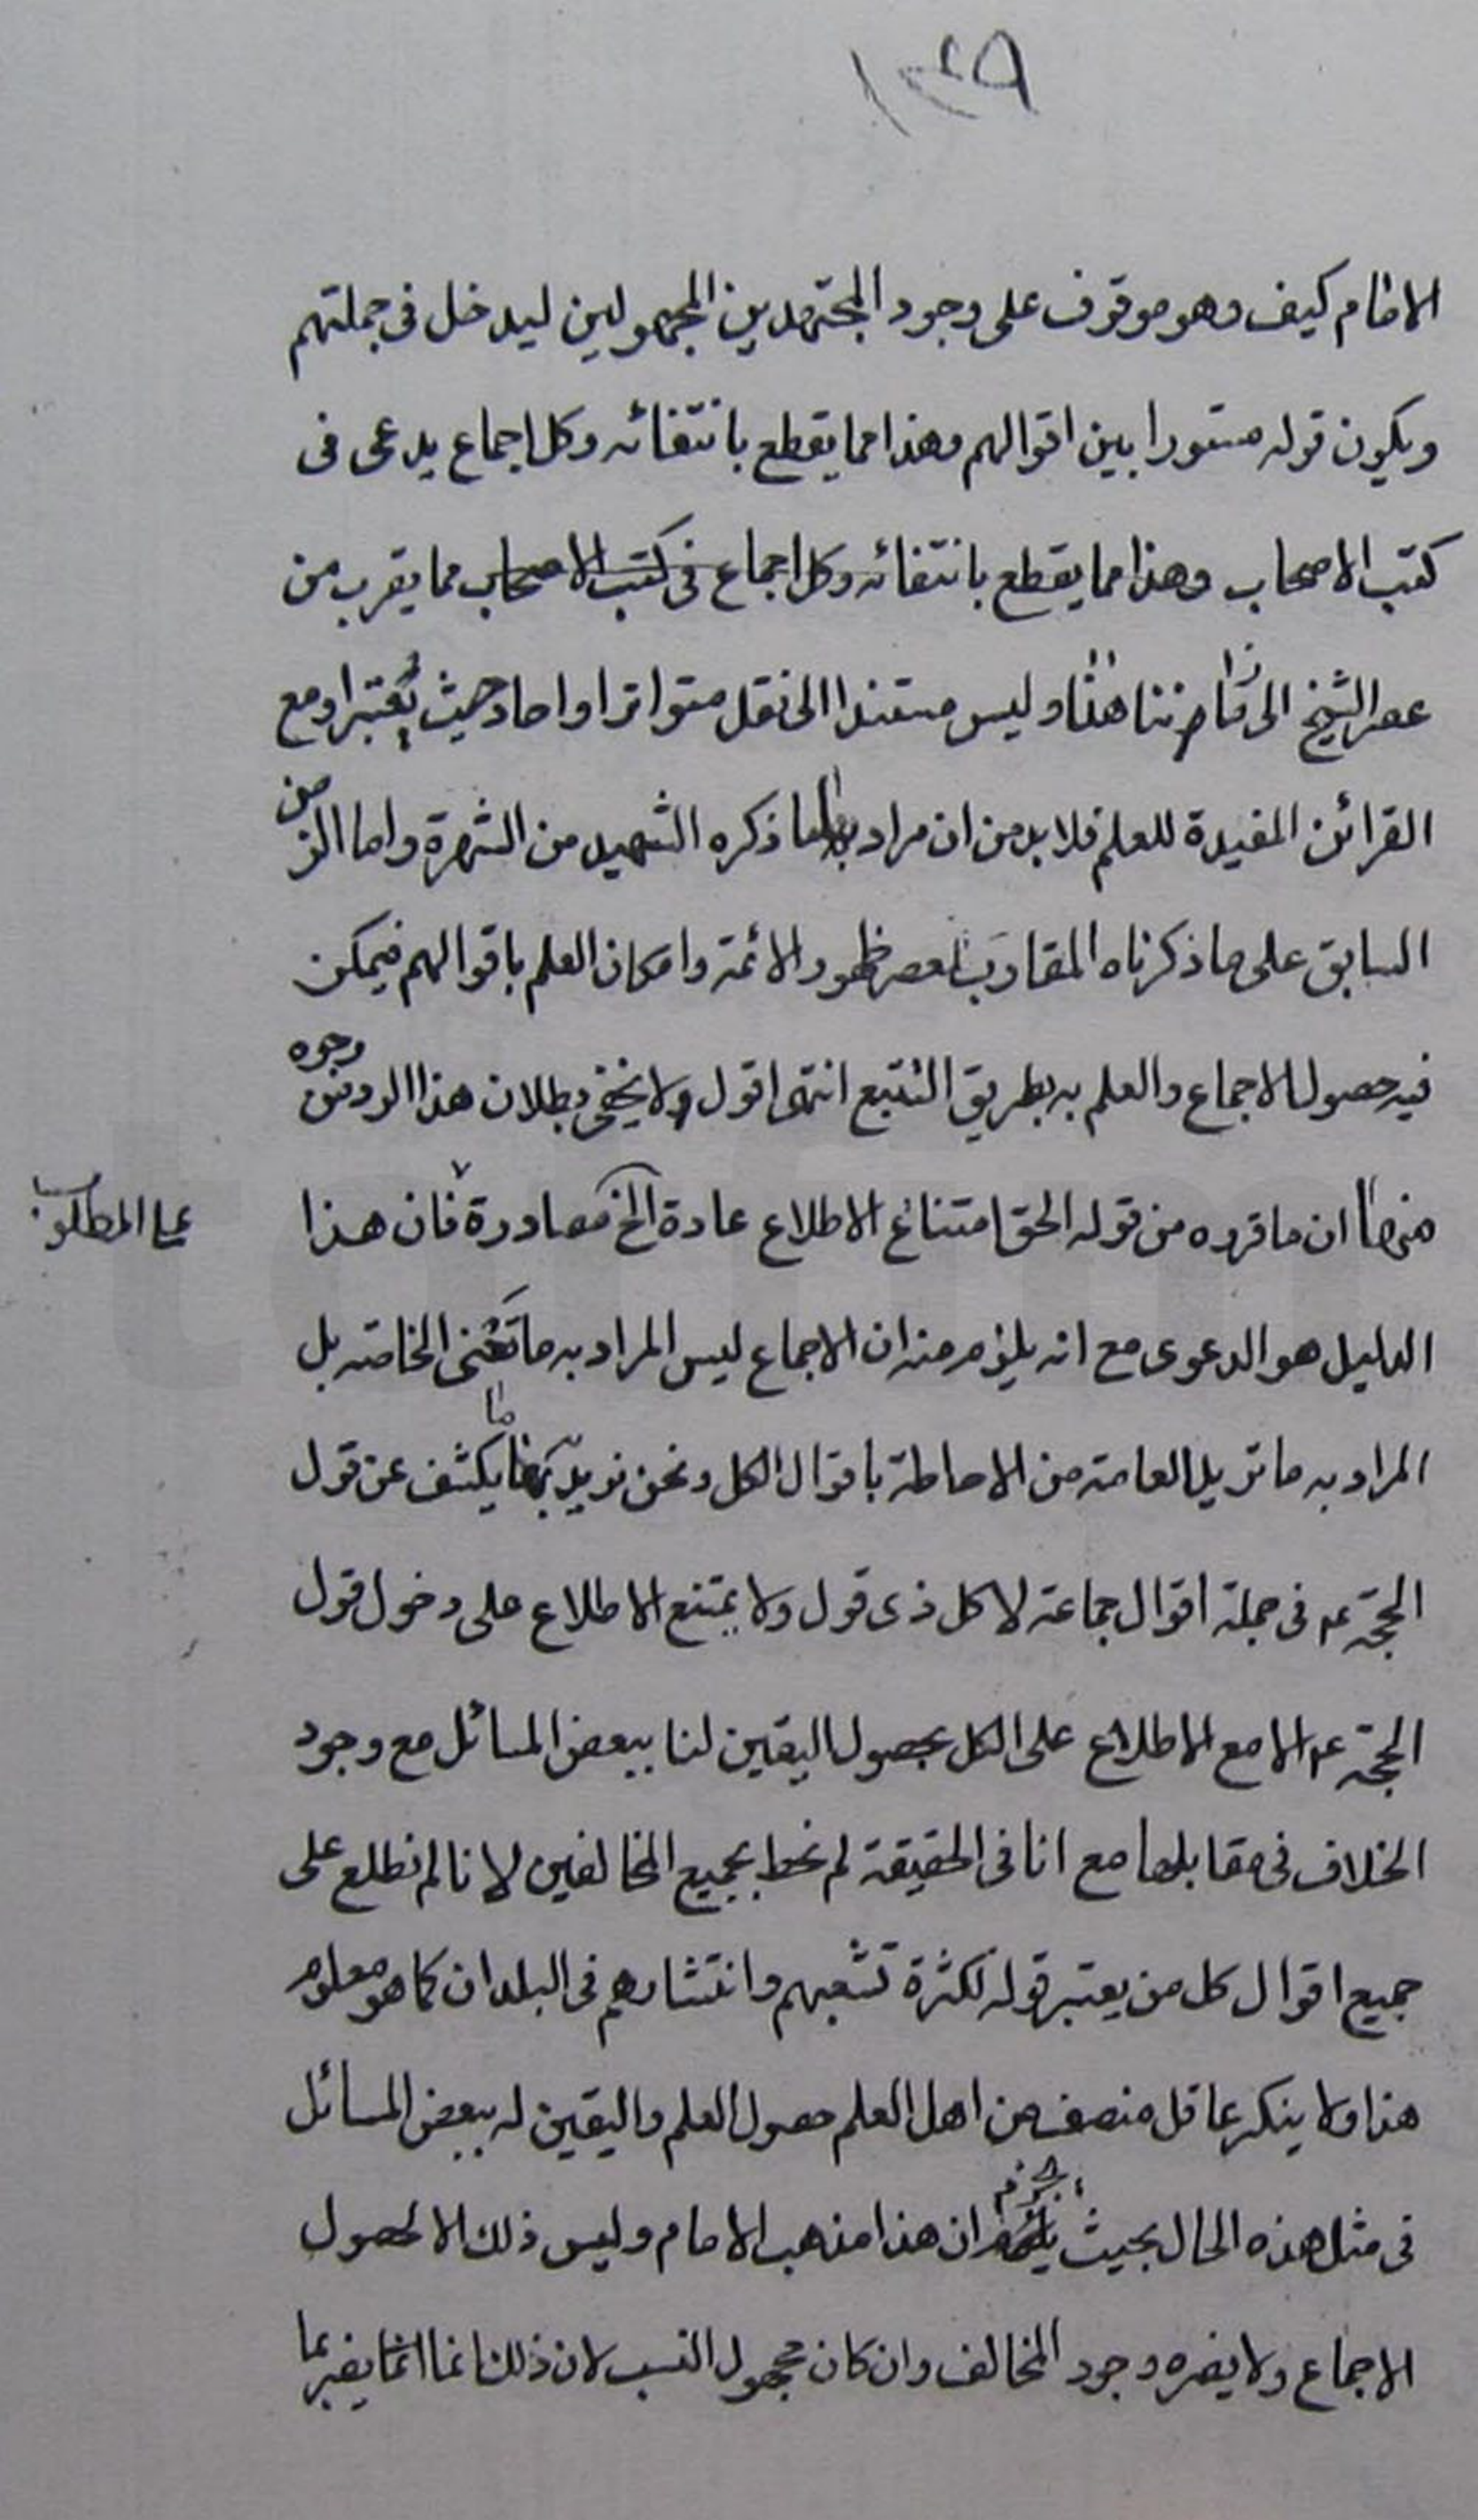 ١٣٩
الامام كيف وهو موقوف على وجود المجتهدين المجهولين ليدخل في جملتهم
ويكون قوله مستورا بين اقوالهم وهذا مما يقطع بانتفائه وكل اجماع يدعى فى
كتب الاصحاب وهذا مما يقطع بانتفائه وكل اجماع فى كتب الاصحاب مما يقرب من
عصر الشيخ الى زماننا هذا وليس مستندا الى نقل متواتر او احاد حيث يعتبر او مع
القرائن المفيدة للعلم فلا بد من ان مراد بها ما ذكره الشهيد من الشهرة واما الزمن
السابق على ما ذكرناه المقارب لعصر ظهور الائمة وامكان العلم باقوالهم فيمكن
فيه حصول الاجماع والعلم به بطريق التتبع انتهى اقول ولا يخفى بطلان هذا الرد من وجوه
منها ان ما قرره من قوله الحق امتناع الاطلاع عادة الخ مصادرة فان هذا
على المطلوب
الدليل هو الدعوى مع انه يلزم منه ان الاجماع ليس المراد به ما تعنى الخاصة بل
المراد به ما تريد العامة من الاحاطة باقوال الكل ونحن نريد به ما يكشف عن قول
الحجة ع م فى جملة اقوال جماعة لا كل ذى قول ولا يمتنع الاطلاع على دخول قول
الحجة ع م الا مع الاطلاع على الكل بحصول اليقين لنا ببعض المسائل مع وجود
الخلاف فى مقابلها مع انا فى الحقيقة لم نحط بجميع المخالفين لانا لم نطلع على
جميع اقوال كل من يعتبر قوله لكثرة تشعبهم وانتشارهم فى البلدان كما هو معلوم
هذا ولا ينكر عاقل منصف من اهل العلم حصول العلم واليقين له ببعض المسائل
فى مثل هذه الحال بحيث يجزم ان هذا مذهب الامام وليس ذلك الا لحصول
الاجماع ولا يضره وجود المخالف وان كان مجهول النسب لان ذلك انما يضر بما